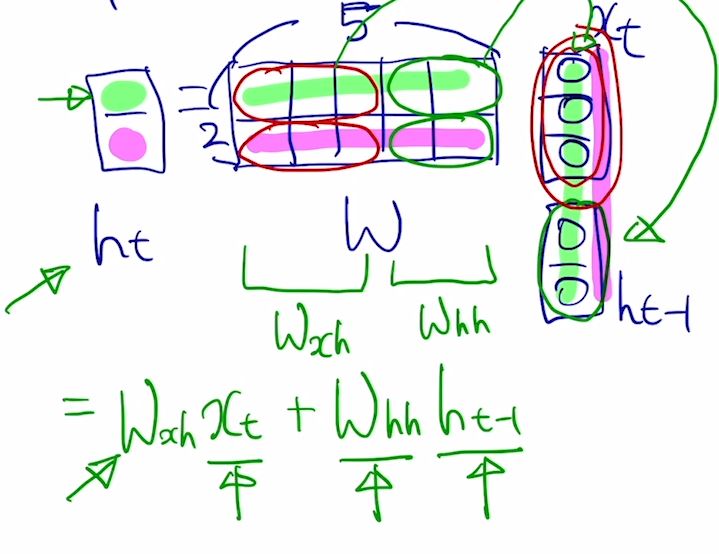 5
xt
=
2
ht
W
ht-1
Wxh
Whh
= Wxh xt + Whh ht-1